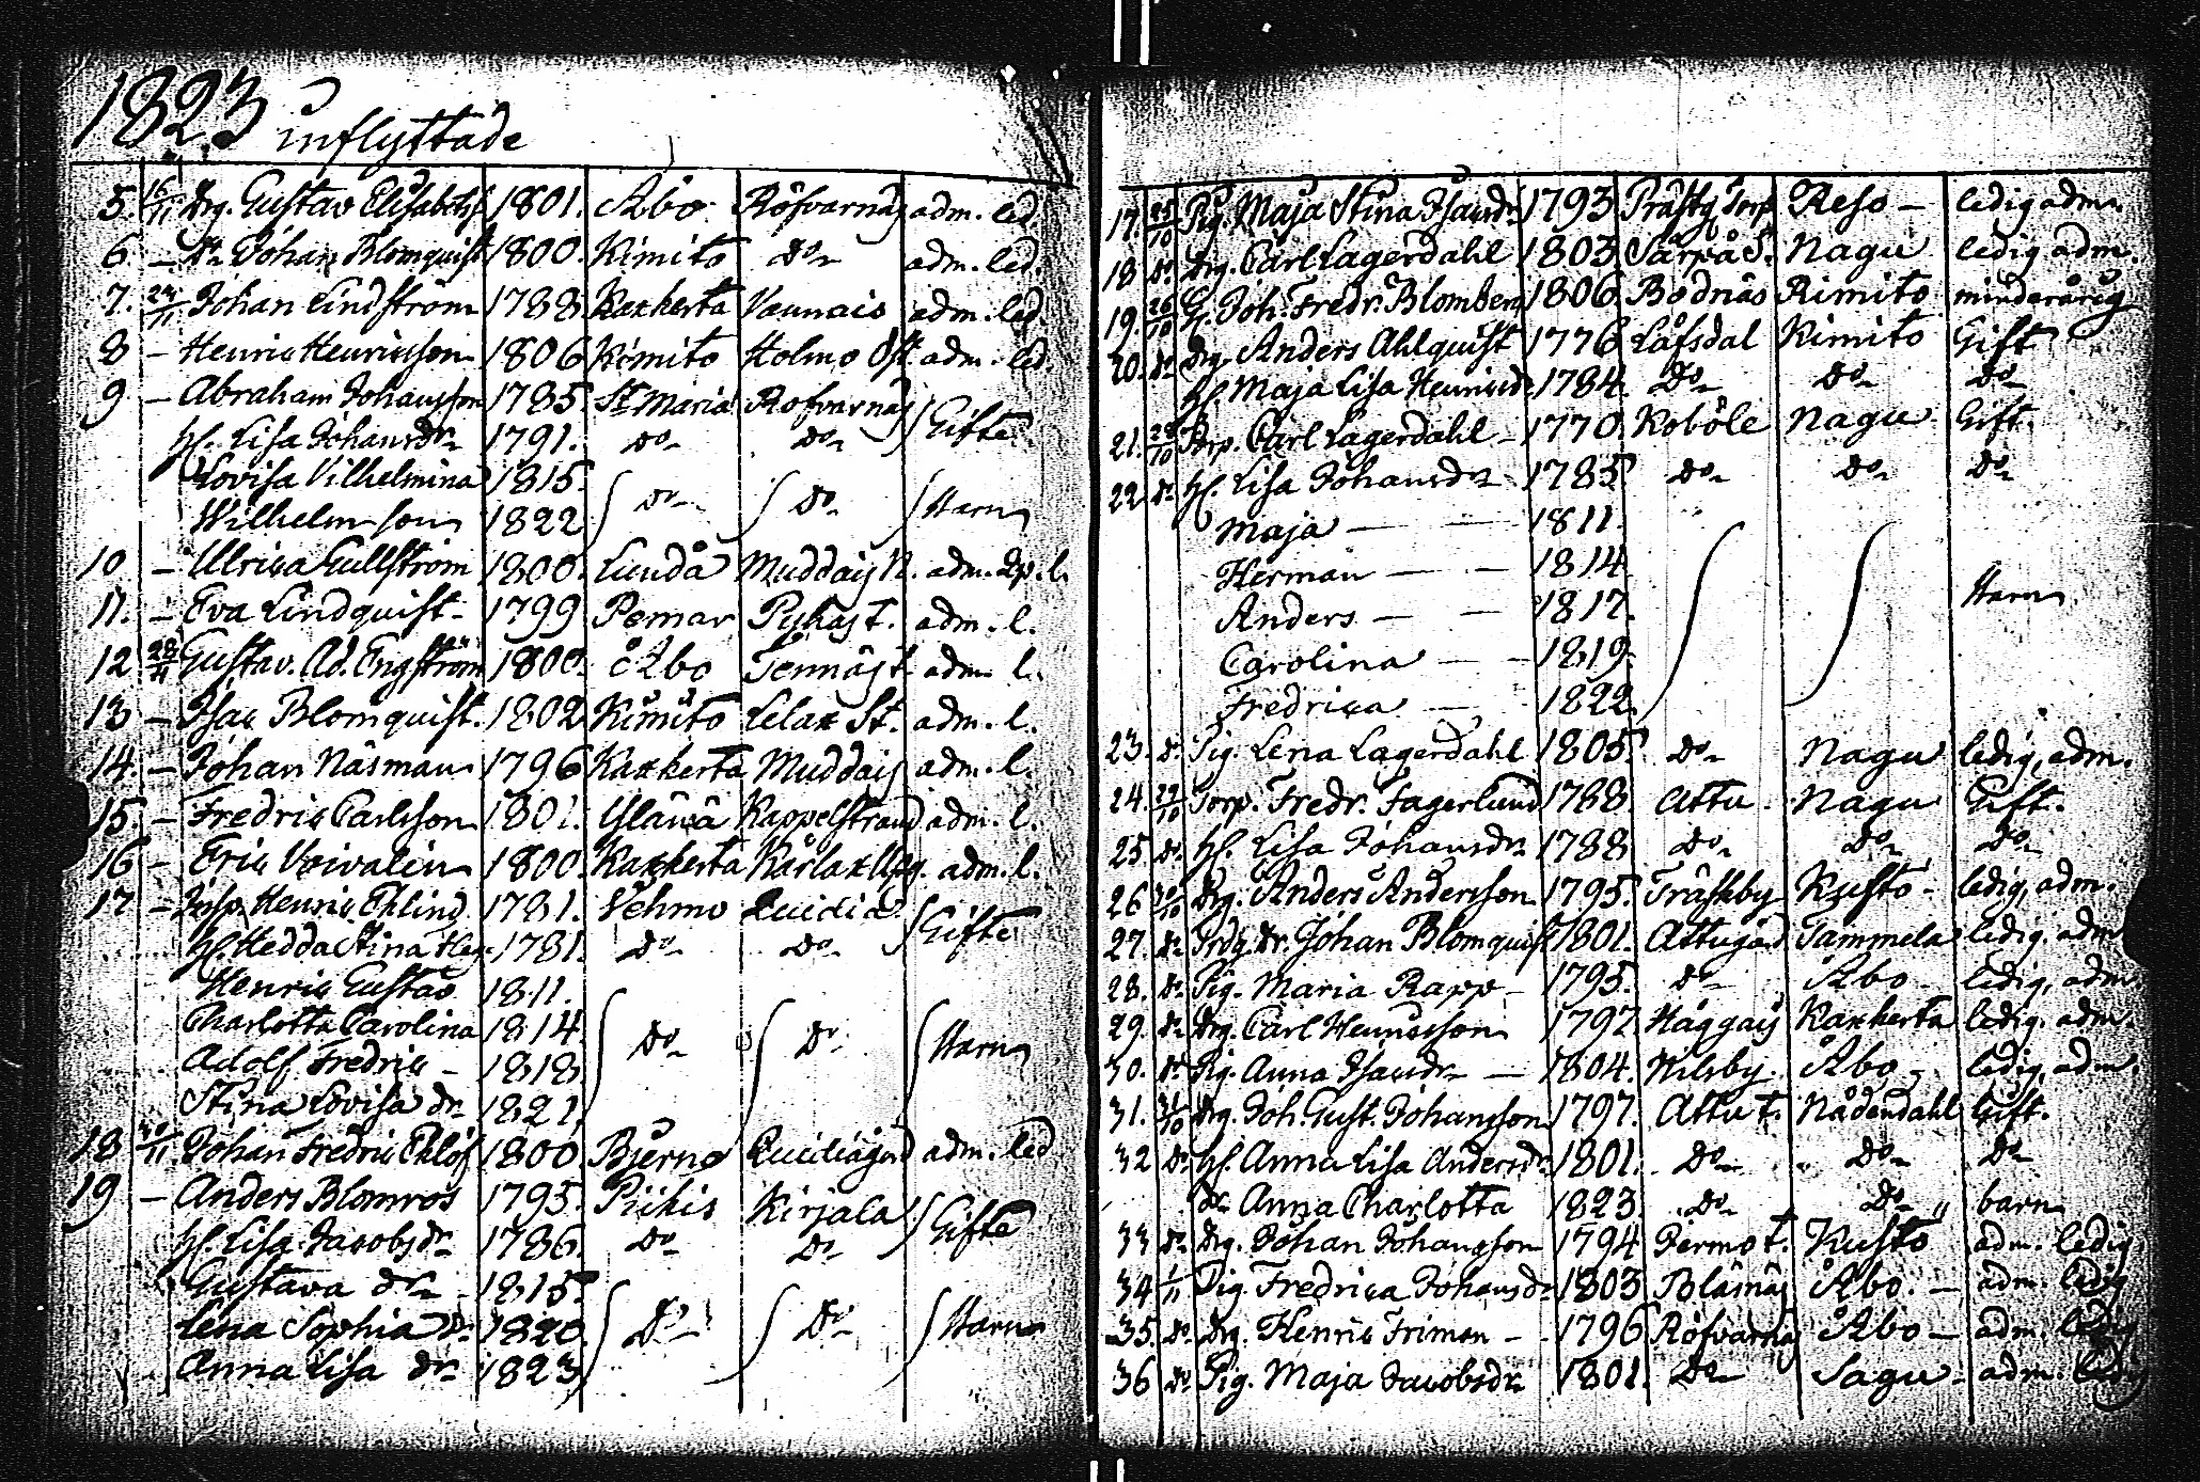 1823 inflyttade
5. 16/11 Drg. Gustav Elisabethss 1801. Åbo Röfvarnäs adm. led.
6. — Dr. Johan Blomquist 1800. Kimito do adm. led.
7. 24/11 Johan Lindström 1788. Kaxkerta Vannais adm. led.
8 — Henric Henricsson 1806 Kimito Holmo adm. led.
9 — Abraham Johansson 1785. St Maria Rofvarnäs Gifte
H. Lisa Johansdr 1791. do do
Lovisa Vilhelmina 1815.
Wilhelm son 1822 do do Barn
10 — Ulrica Gullström 1800. Lundå Muddais N. adm. l.
11. — Eva Lindquist 1799 Pemar Pyhäs t. adm. l.
12 28/11 Gustav. Ad. Engström 1800. Åbo Tennäs t. adm. l.
13 — Isac Blomquist. 1802 Kimito Lelax St. adm. l.
14. — Johan Näsman 1796 Kaxkerta Muddais adm. l.
15. — Fredric Carlsson 1801. Ylänä Kappelstrand adm. l.
16 — Eric Voivalin 1800. Kaxkerta Kärlax adm. l.
17 — Insp. Henric Ehlind 1781. Vehmo Quidia Gifte
H. Hedda Stina 1781. do do
Henric Gustav 1811.
Charlotta Carolina 1814.
Adolf Fredric — 1818 do do Barn
Stina Lovisa dr 1821,
18 30/11 Johan Fredric Ehlöf 1800. Bjerno Quidiagård adm. led
19 — Anders Blomros 1795. Piikis Kirjala Gifte
H. Lisa Jacobsdr 1786. do do
Gustava dr 1815.
Lena Sophia dr 1820. do do Barn
Anna Lisa dr 1823
17. 25/10 Pig. Maja Stina Isacsdr 1793 Prästg. Torp Reso — ledig adm.
18 do Drg. Carl Lagerdahl 1803. Särpå S. Nagu ledig adm.
19. 26/10 G. Joh. Fredr. Blomberg 1806. Bodnäs Rimito minderårig
20. do Drg. Anders Ahlquist 1776 Låfsdal Kimito Gift
H. Maja Lisa Henricsdr 1784. do do do
21. 28/10 Torp. Carl Lagerdahl — 1770. Koböle Nagu Gift.
22 do H. Lisa Johansdr 1785 do do do
Maja — — 1811.
Herman — — 1814
Anders — — 1817.
Carolina — — 1819. Barn
Fredrica — 1822.
23. do Pig. Lena Lagerdahl 1805. do Nagu ledig, adm.
24. 29/10 Torp. Fredr. Fagerlund 1788. Attu. Nagu Gift.
25 do H. Lisa Johansdr 1788 do do do
26 30/10 Drg. Anders Andersson 1795. Träskby Kusto — ledig, adm.
27. do Trdg. Dr. Johan Blomquist 1801. Attugård Tammela ledig. adm
28. do Pig. Maria Rapp — 1795. do Åbo ledig, adm
29. do Drg. Carl Henricsson 1792 Häggais Kaxkerta ledig. adm.
30. do Pig. Anna Isacsdr — 1804. Nilsby. Åbo — ledig, adm.
31. 31/10 Drg. Joh. Gust. Johansson 1797. Attu t. Nådendahl Gift.
32 do H. Anna Lisa Andersdr 1801. do do do
dr Anna Charlotta 1823. do do „ barn
33 do Drg. Johan Johansson 1794 Permo t. Kusto adm. ledig
34 1/11 Pig. Fredrica Johansdr 1803 Bläsnäs Åbo. — adm. ledig
35. do Drg. Henric Friman — 1796 Röfvarnäs Åbo — adm. ledig
36 do Pig. Maja Jacobsdr 1801. do Sagu — adm. ledig